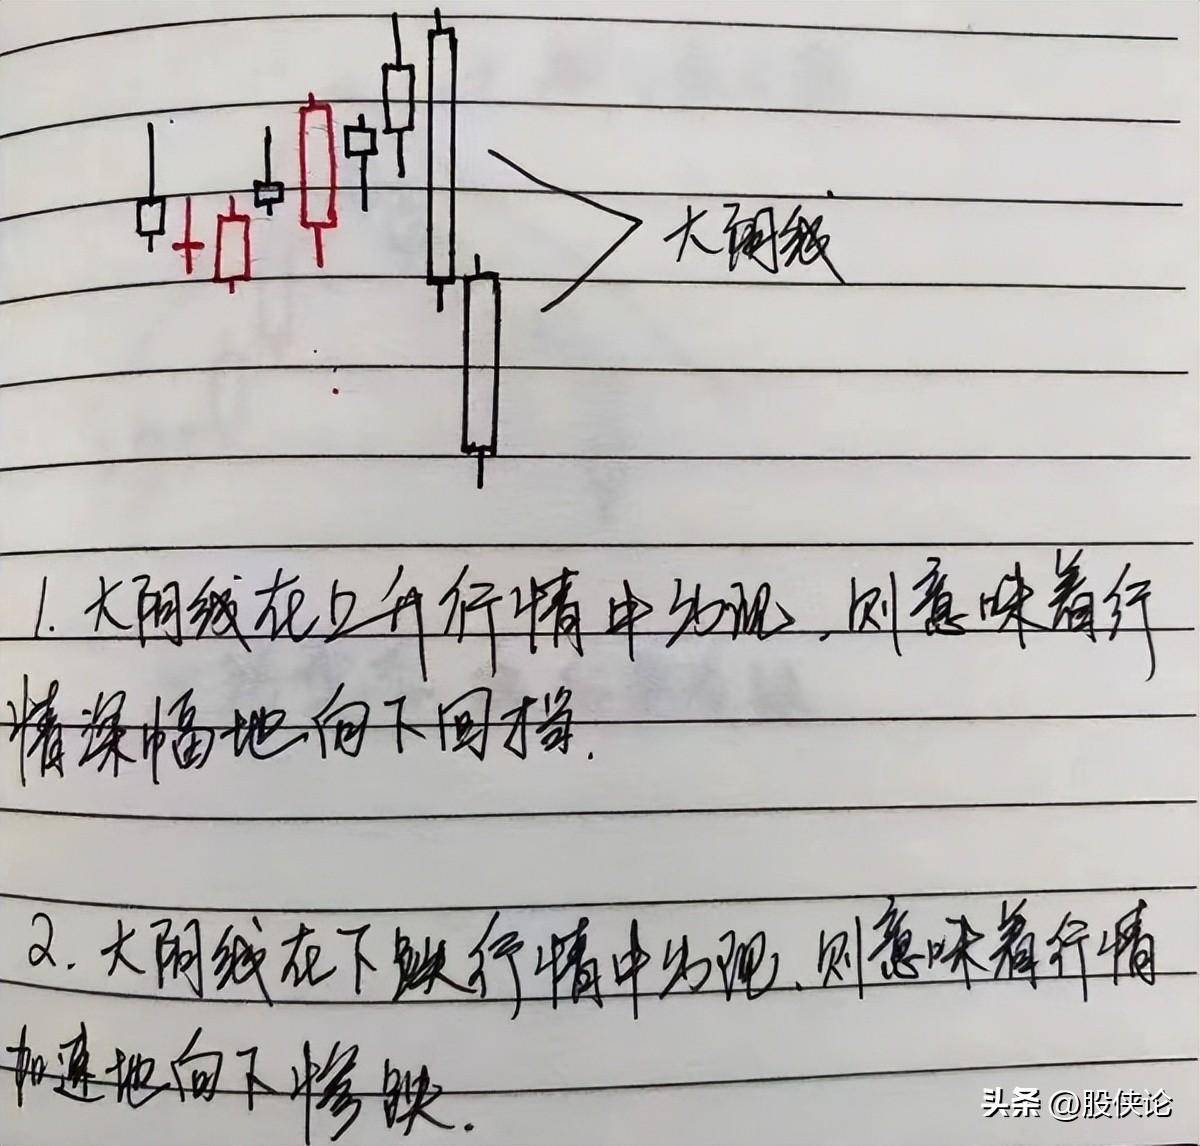 大阴线
1. 大阴线在上升行情中出现,则意味着行
情深幅地向下回档.
2. 大阴线在下跌行情中出现,则意味着行情
加速地向下惨跌.
头条 @股侠论